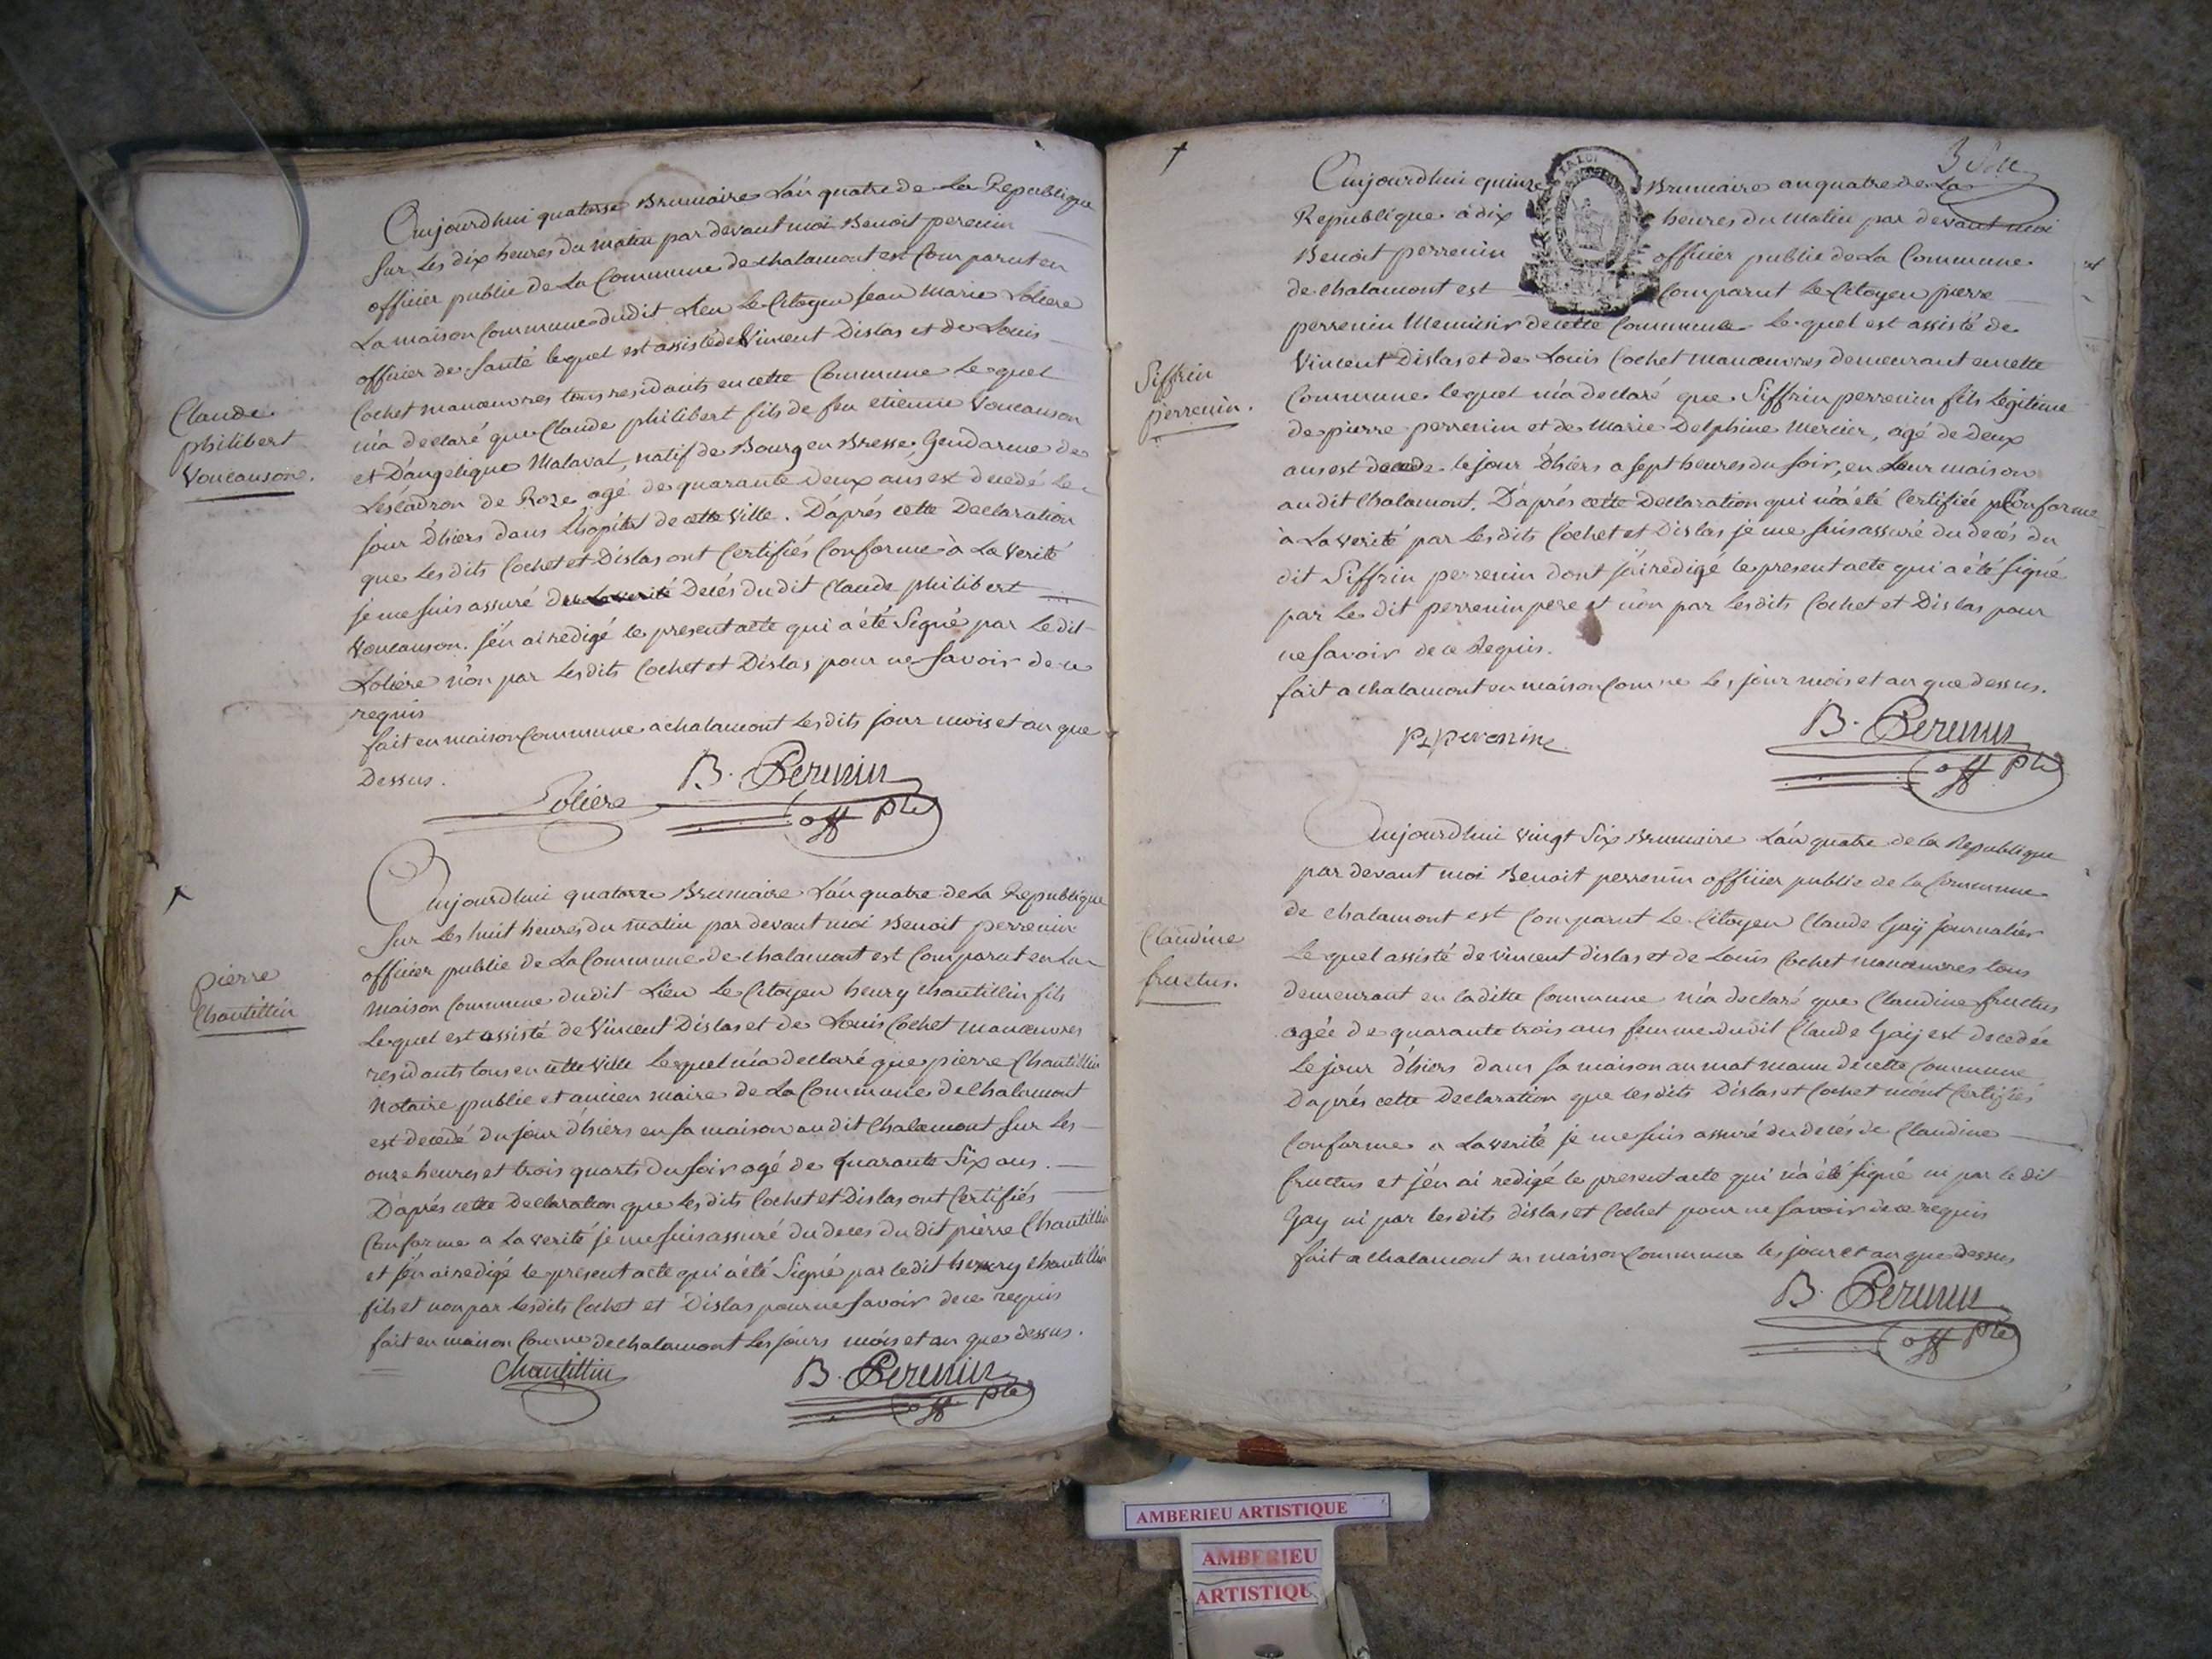 Aujourdhui quatorse Brumaire L'an quatre de La Republique
sur Les dix heures du matin par devant moi Benoit perenin
officier public de La Commune de chalamont est Comparut en
La maison Commune dudit Lieu Le Citoyen jean Marie Loliere
officier de santé lequel est assisté de Vincent Dislas et de Louis
Cochet manœuvres tous residants en cette Commune Le quel
m'a declaré que Claude philibert fils de feu etienne Voucanson
et D'angelique Malaval, natif de Bourg en Bresse, Gendarme de
L'éscadron de Roze agé de quarante deux ans est decedé Le
jour d'hiers dans L'hopital de cette Ville. D'aprés cette Declaration
que Les dits Cochet et Dislas ont Certifiés Conforme à La Verité
je me suis assuré du Decés du dit Claude philibert
Voucanson. j'en ai redigé le present acte qui a été Signé par Le dit
Loliere non par Les dits Cochet et Dislas pour ne savoir de ce
requis
fait en maison Commune a chalamont Les dits jour mois et an que
Dessus.
Loliere B. Perenin
off ple
Claude
philibert
Voucanson.
Aujourdhui quatorze Brumaire L'an quatre de La Republique
sur Les huit heures du matin par devant moi Benoit perrenin
officier public de La Commune de chalamont est Comparut en La
maison Commune dudit Lieu Le Citoyen henry chantillin fils
Lequel est assisté de Vincent Dislas et de Louis Cochet manœuvres
residants tous en cette Ville Lequel m'a declaré que pierre Chantillin
Notaire public et ancien maire de La Commune de Chalamont
est decedé du jour d'hiers en sa maison au dit Chalamont sur Les
onze heures et trois quarts du soir agé de quarante Six ans.
D'aprés cette Declaration que Les dits Cochet et Dislas ont Certifiés
Conforme a La verité je me suis assuré du deces du dit pierre Chantillin
et j'en ai redigé le present acte qui a été Signé par le dit henry chantillin
fils et non par Les dits Cochet et Dislas pour ne savoir de ce requis
fait en maison Comune de chalamont Les jours mois et an que dessus.
Chantillin B. Perenin
off ple
pierre
Chantillin
3 Sole
Aujourdhui quinze Brumaire an quatre de La
Republique à dix heures du Matin par devant moi
Benoit perrenin officier public de La Commune
de chalamont est Comparut Le Citoyen pierre
perrenin Menuisir de cette Commune Le quel est assisté de
Vincent Dislas et de Louis Cochet manœuvres demeurant en cette
Commune lequel m'a declaré que Siffrin perrenin fils Légitime
de pierre perrenin et de Marie Delphine Mercier, agé de Deux
ans est decede le jour d'hiers a sept heures du soir, en Leur maison
au dit Chalamont. D'aprés cette Declaration qui m'a été Certifiée Conforme
à La verité par Les dits Cochet et Dislas je me suis assuré du decés du
dit Siffrin perrenin dont j'ai redigé le present acte qui a été signé
par Le dit perrenin pere et non par Les dits Cochet et Dislas pour
ne savoir de ce Requis.
fait a chalamont en maison Comune Les jour mois et an que dessus.
B. Perenin
off ple
Siffrin
perrenin.
Aujourdhui vingt Six Brumaire L'an quatre de la Republique
par devant moi Benoit perrenin officier public de la Commune
de chalamont est Comparut Le Citoyen Claude Gaÿ journalier
Le quel assisté de vincent dislas et de Louis Cochet manœuvres tous
demeurant en laditte Commune m'a declaré que Claudine fructus
agée de quarante trois ans femme dudit Claude Gaÿ est decedée
Le jour d'hiers dans sa maison au de cette Commune
D'aprés cette Declaration que les dits Dislas et Cochet m'ont Certifiés
Conforme a La verité je me suis assuré du decés de Claudine
fructus et j'en ai redigé le present acte qui n'a été signé ni par le dit
Gay ni par les dits dislas et Cochet pour ne savoir de ce requis
fait a chalamont en maison Commune les jour et an que dessus
B. Perenin
off ple
Claudine
fructus.
AMBERIEU ARTISTIQUE
AMBERIEU
ARTISTIQUE